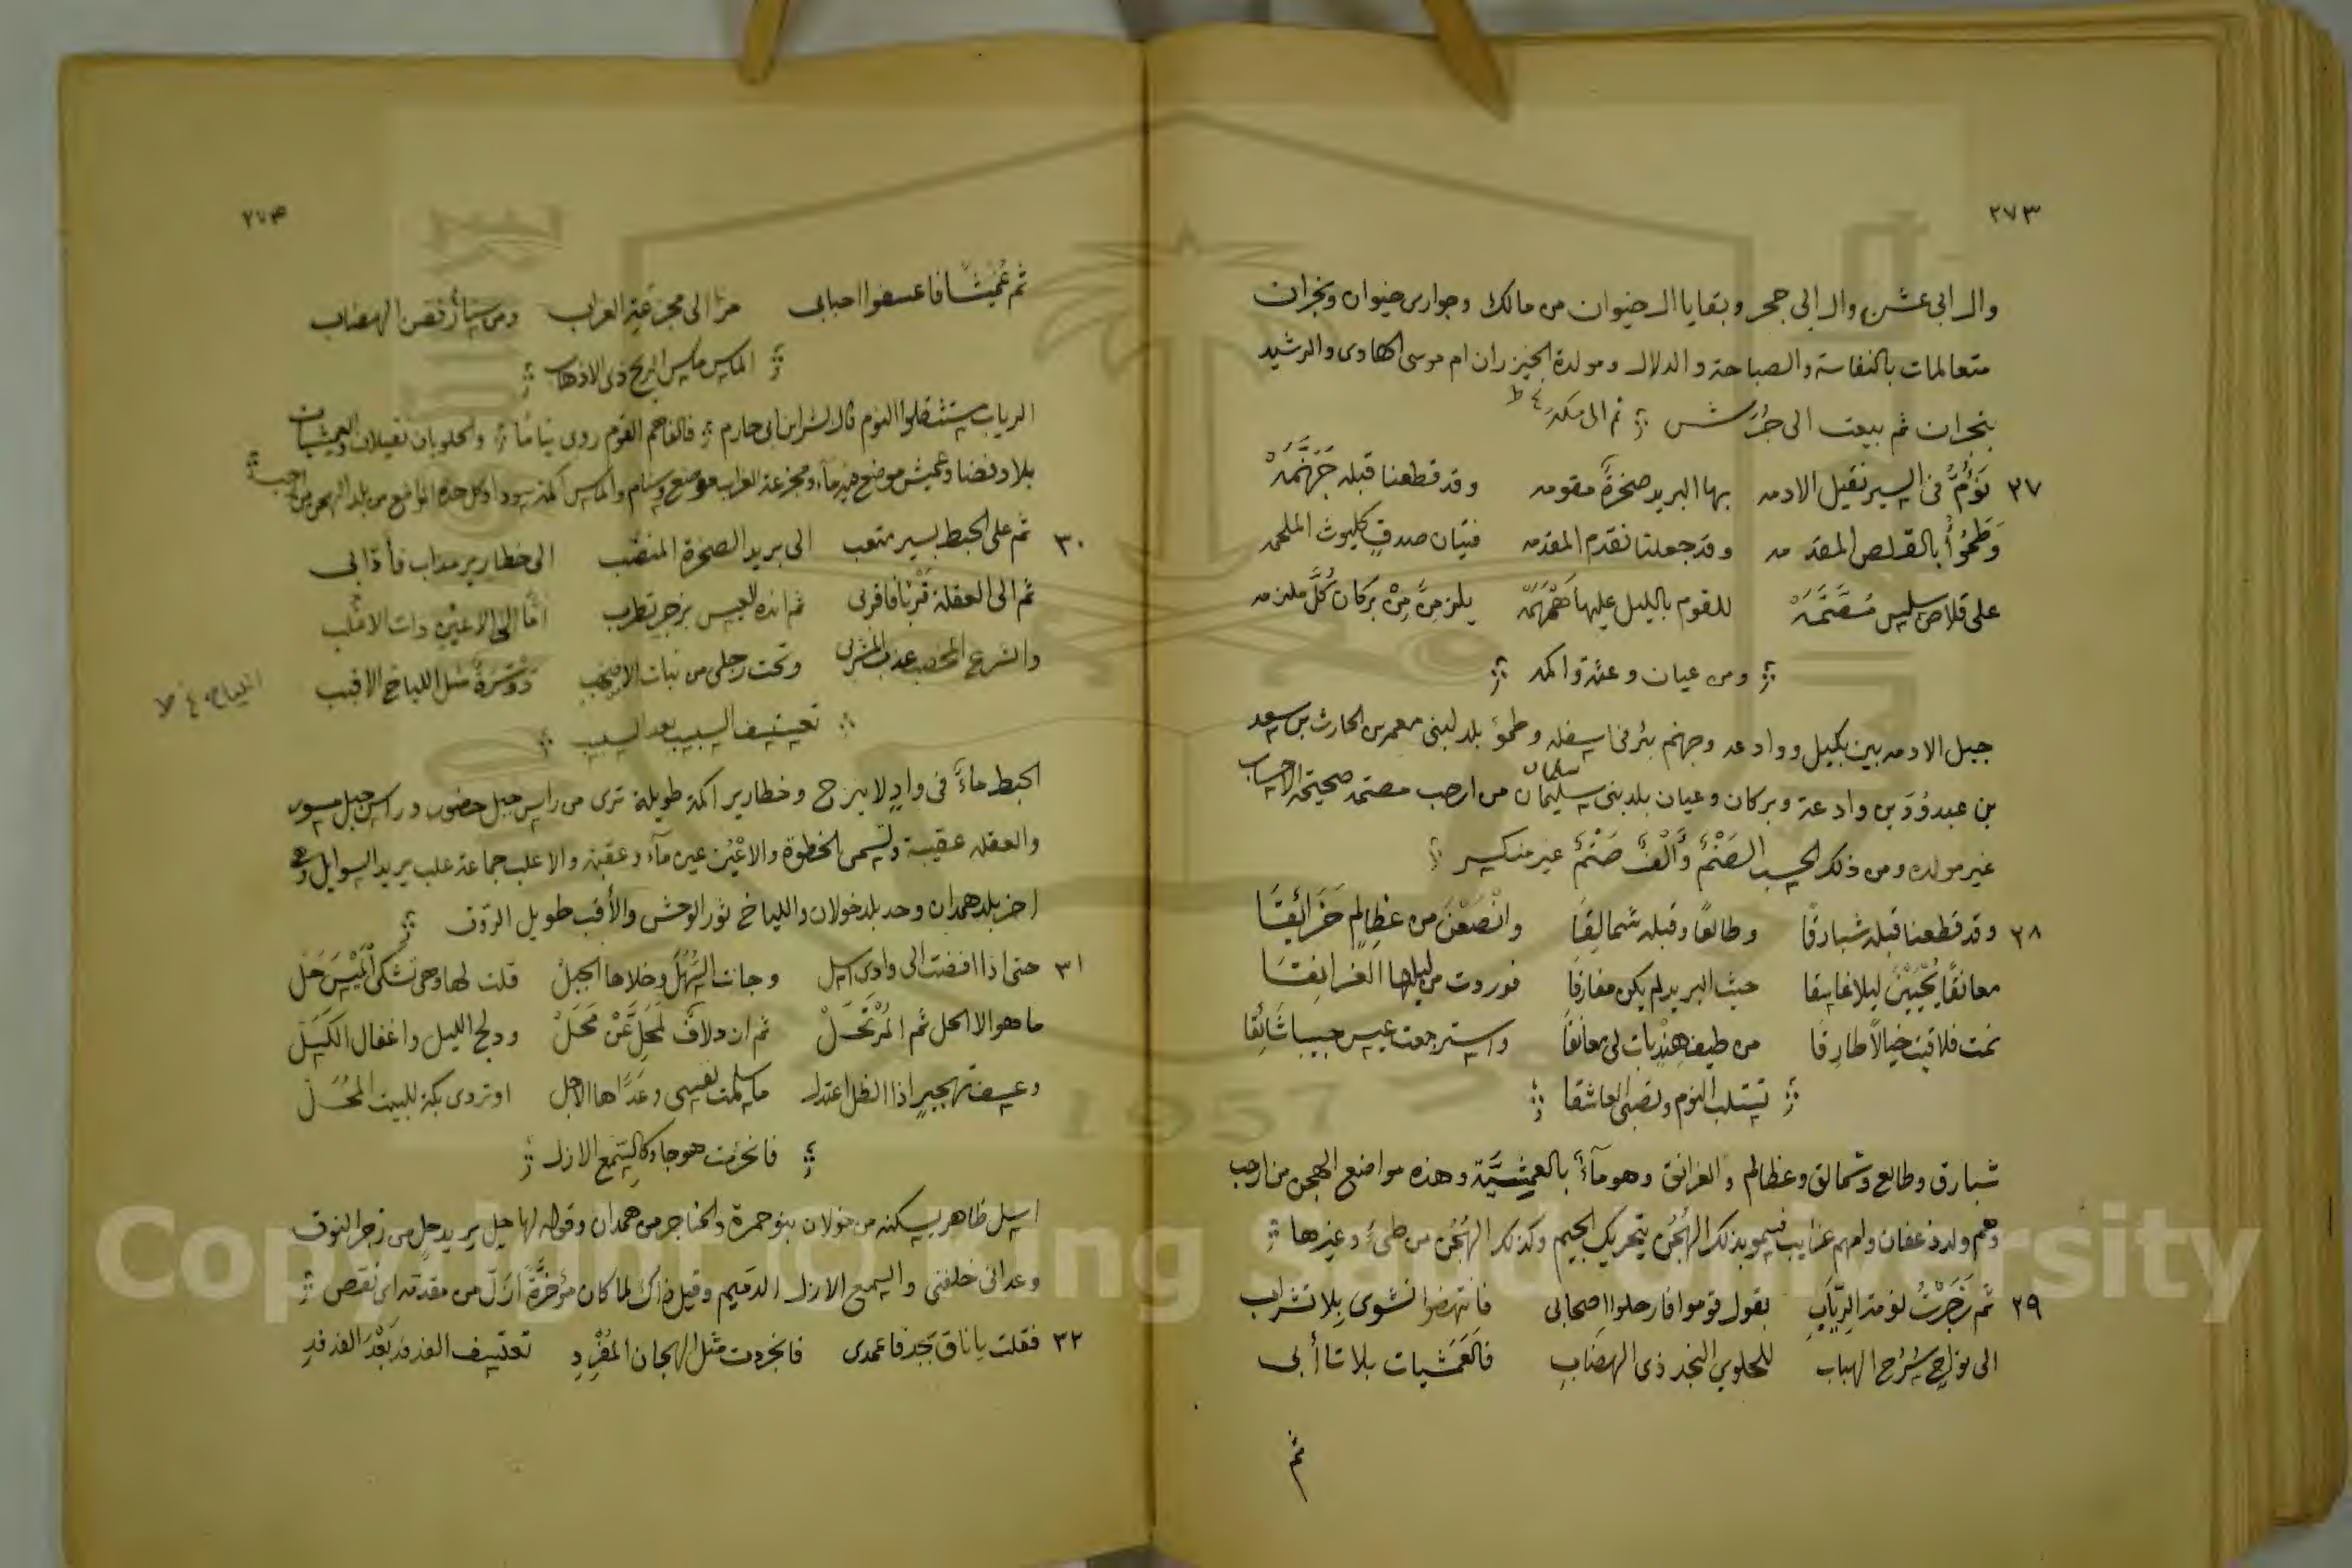 ٢٧٣
وال ابى عشن وال ابى حجر وبقايا ال خيوان من مالك وجوارى خيوان ونجران
متعالمات بالنفاسة والصباحة والدلال ومولدة الخيزران ام موسى الهادى والرشيد
بنجران ثم بيعت الى جُرَش ثم الى مكة
٢٧ نَؤُمُّ فى السير نقيل الادمه بها البريد صخرةً مقومه وقد قطعنا قبله جَهَنَّمَهْ
وَطَمُؤاً بالقلص المقدمه وقد جعلنا نقدم المقدمه فتيان صدقٍ كليوث الملحمه
على قلاص سلس مُصَتَّمَهْ للقوم بالليل عليها هَمْهَمَهْ يلزمنَ مِنْ بركان كُلَّ ملزمه
ومن عيان وعثة واكمه
جبل الادمه بين بكيل ووادعه وجهنم بئر فى اسفله وطمؤ بلد لبنى معمر بن الحارث بن سعد
بن عبد وُدّ بن وادعة وبركان وعيان بلد بنى سليمان سلمان من ارحب مصتمة صحيحة الاحساب
غير مولده ومن ذلك الحسب الصَتْمُ وَأَلْفٌ صَتْمٌ غير منكسر
٢٨ وقد قطعنا قبله شبارقا وطالعا وقبله شمالقا وانْصَعْنَ من عظالم حَزَائقَا
معانقًا يُحْيِيْنَ ليلا غاسقا حيث البريد لم يكن مفارقا فوردت من ليلها الغرانقا
نمت فلاقيت خيالًا طارقا من طيف هنديات لى معانقا واسترجعت عيس حبيبا شائقا
تستلب النوم وتصبى العاشقا
شبارق وطالع وشمالق وعظالم والغرانق وهو مآءٌ بالعمشيّة وهذه مواضع الهجن من ارحب
وهم ولد ذعفان وامهم غرايب فسمو بذلك الهُجُن بتحريك الجيم وكذلك الهُجُن من طىء وغيرها
٢٩ ثم زَجَرْتُ لومة الرِّيَابِ بقول قوموا فارحلوا اصحابى فانتهضوا نشوى بلا شراب
الى نواجٍ سُرُح الهباب للحلوى النجد ذى الهضاب فالعَمَشيات بلا تأابى
ثم
٢٧٤
ثم عُمَيْشًا فاعسفوا احبابى مرا الى مجزعة الغراب ومن سنام فقض الهضاب
الماس ماس الريح ذى الاذهاب
الرياب ستثقلوا النوم قال بشر ابن ابى حازم فالفاهم القوم روبى نياما والحلويان نقيلان والعمشيات
بلاد فضا وعميش موضع فيه مآء ومجزعة الغراب موضع وسنام والماس اكمة سودا وكل هذه المواضع من بلد الهجن من ارحب
٣٠ ثم على الخبط بسير متعب الى بريد الصخرة المنصب الى خطارير مداب فأذابى
ثم الى العقلة قُرْبًا فاقربى ثم انده العيس بزجر تطرب امّا الى الاعيُنِ ذات الاعلب
والشرع المخصب عذب المشرب وتحت رحلى من نبات الاصهب دَوْسَرَةٌ مثل اللياح الاقبب
اللياح
تعتسف السبسب بعد السبسب
الخبط مآءٌ فى وادٍ لا ينزح وخطارير اكمة طويلة ترى من راس جبل حضور وراس جبل مسور
والعقله عقيبة وتسمى الخطوة والاعْيُن عين مآء وعقبة والاعلب جماعة علب يريد السوايل وهى
اخر بلد همدان وحد بلد خولان واللياح ثور الوحش والأقب طويل الروق
٣١ حتى اذا افضت الى وادى اسل وجانت السَّهْلَ وخلاها الجبلْ قلت لها وهى تشكّى الْمَيْسَ حَلْ
ما هو الا الحل ثم المُرْتَحَلْ ثم ان دلافٌ لمحِلٍّ عَنْ مَحَلْ ودلج الليل واغفال الكَسَلْ
وعسف تهجير اذا الظل اعتدل ما سلمت نفسى وعَدّاها الاجل او تردى بكة للبيت المُحَلْ
فانحزمت هوجاء كالسِّمع الازل
اسل ظاهر يسكنه من خولان بنو حمرة والحناجر من همدان وقوله لها حل يريد حلٍ من زجر النوق
وعدانى خلفنى والسمع الازل الدقيم وقيل ذاك لما كان مؤخَّرَهُ ازلّ من مقدمه اى نقص
٣٢ فقلت يا ناق بجد فاعمدى فانجردت مثل الهجان المُفْرِدِ تعتسف الفدفد بَعْدَ الفدفدِ
Copyright © King Saud University
1957